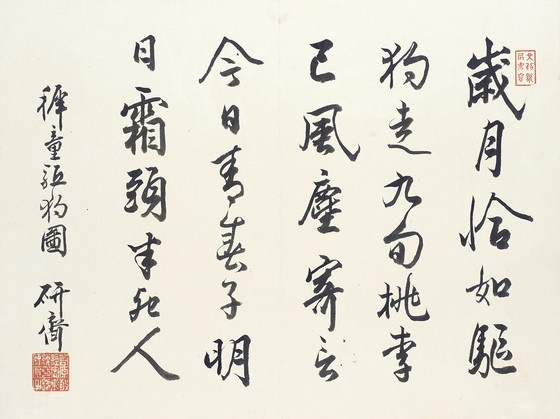 歲月恰如驅
狗走九旬桃李
已風塵寄言
今日青春子明
日霜頭半死人
穉童駈狗圖 研